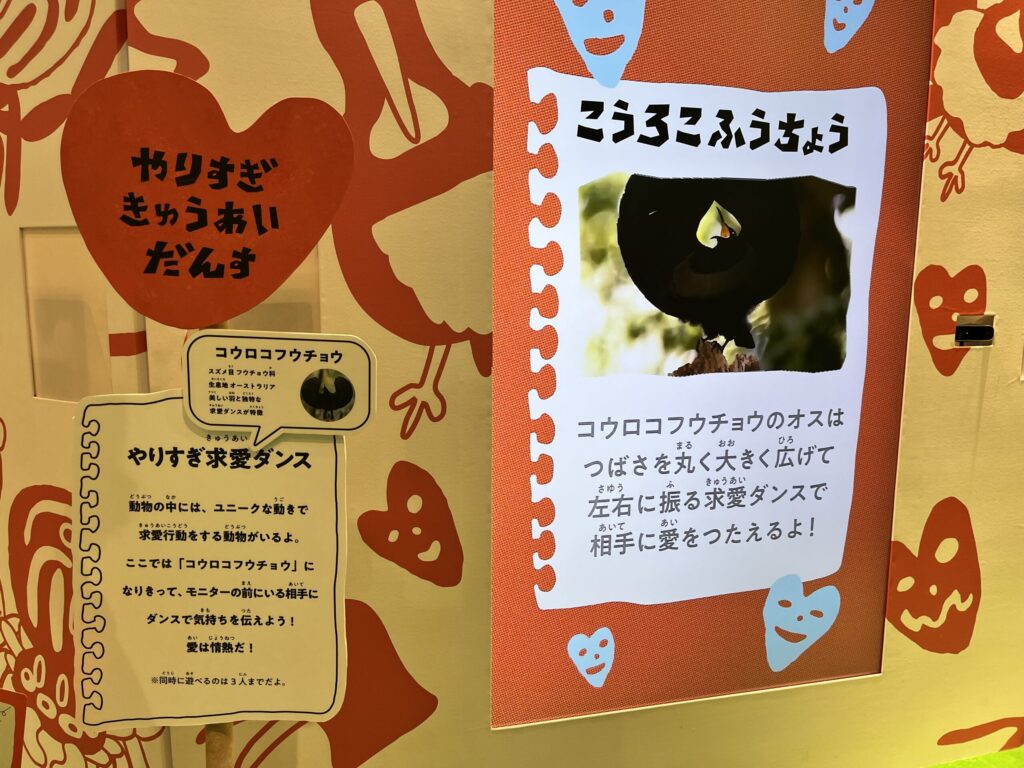 やりすぎ
きゅうあい
だんす
コウロコフウチョウ
スズメ目 フウチョウ科
生息地 オーストラリア
美しい羽と独特な
求愛ダンスが特徴
やりすぎ求愛ダンス
動物の中には、ユニークな動きで
求愛行動をする動物がいるよ。
ここでは「コウロコフウチョウ」に
なりきって、モニターの前にいる相手に
ダンスで気持ちを伝えよう！
愛は情熱だ！
※同時に遊べるのは3人までだよ。
こうろこふうちょう
コウロコフウチョウのオスは
つばさを丸く大きく広げて
左右に振る求愛ダンスで
相手に愛をつたえるよ！